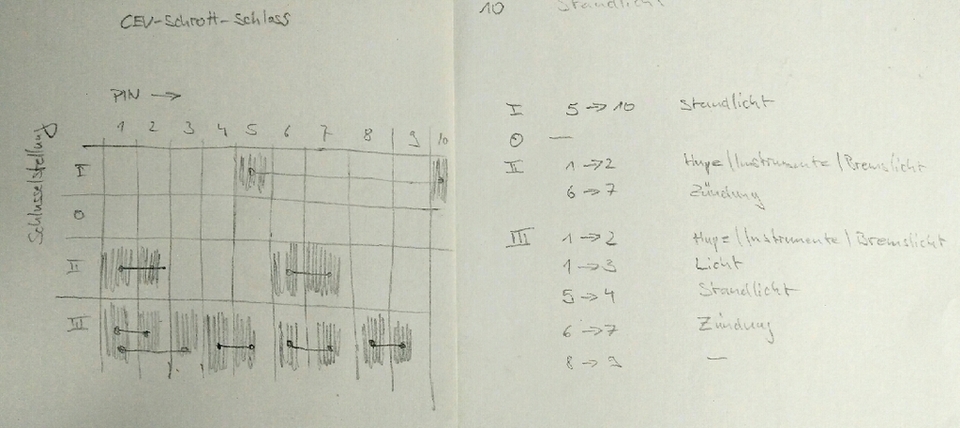 CEV-Schrott-Schloss
PIN →
1 2 3 4 5 6 7 8 9 10
Schlüsselstellung
I
O
II
III
10 Standlicht
I 5 → 10 Standlicht
O —
II 1 → 2 Hupe / Instrumente / Bremslicht
6 → 7 Zündung
III 1 → 2 Hupe / Instrumente / Bremslicht
1 → 3 Licht
5 → 4 Standlicht
6 → 7 Zündung
8 → 9 —